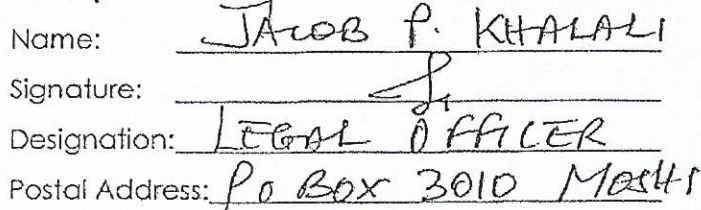 Name: JACOB P. KHALALI
Signature:
Designation: LEGAL OFFICER
Postal Address: P o BOX 3010 MOSHI